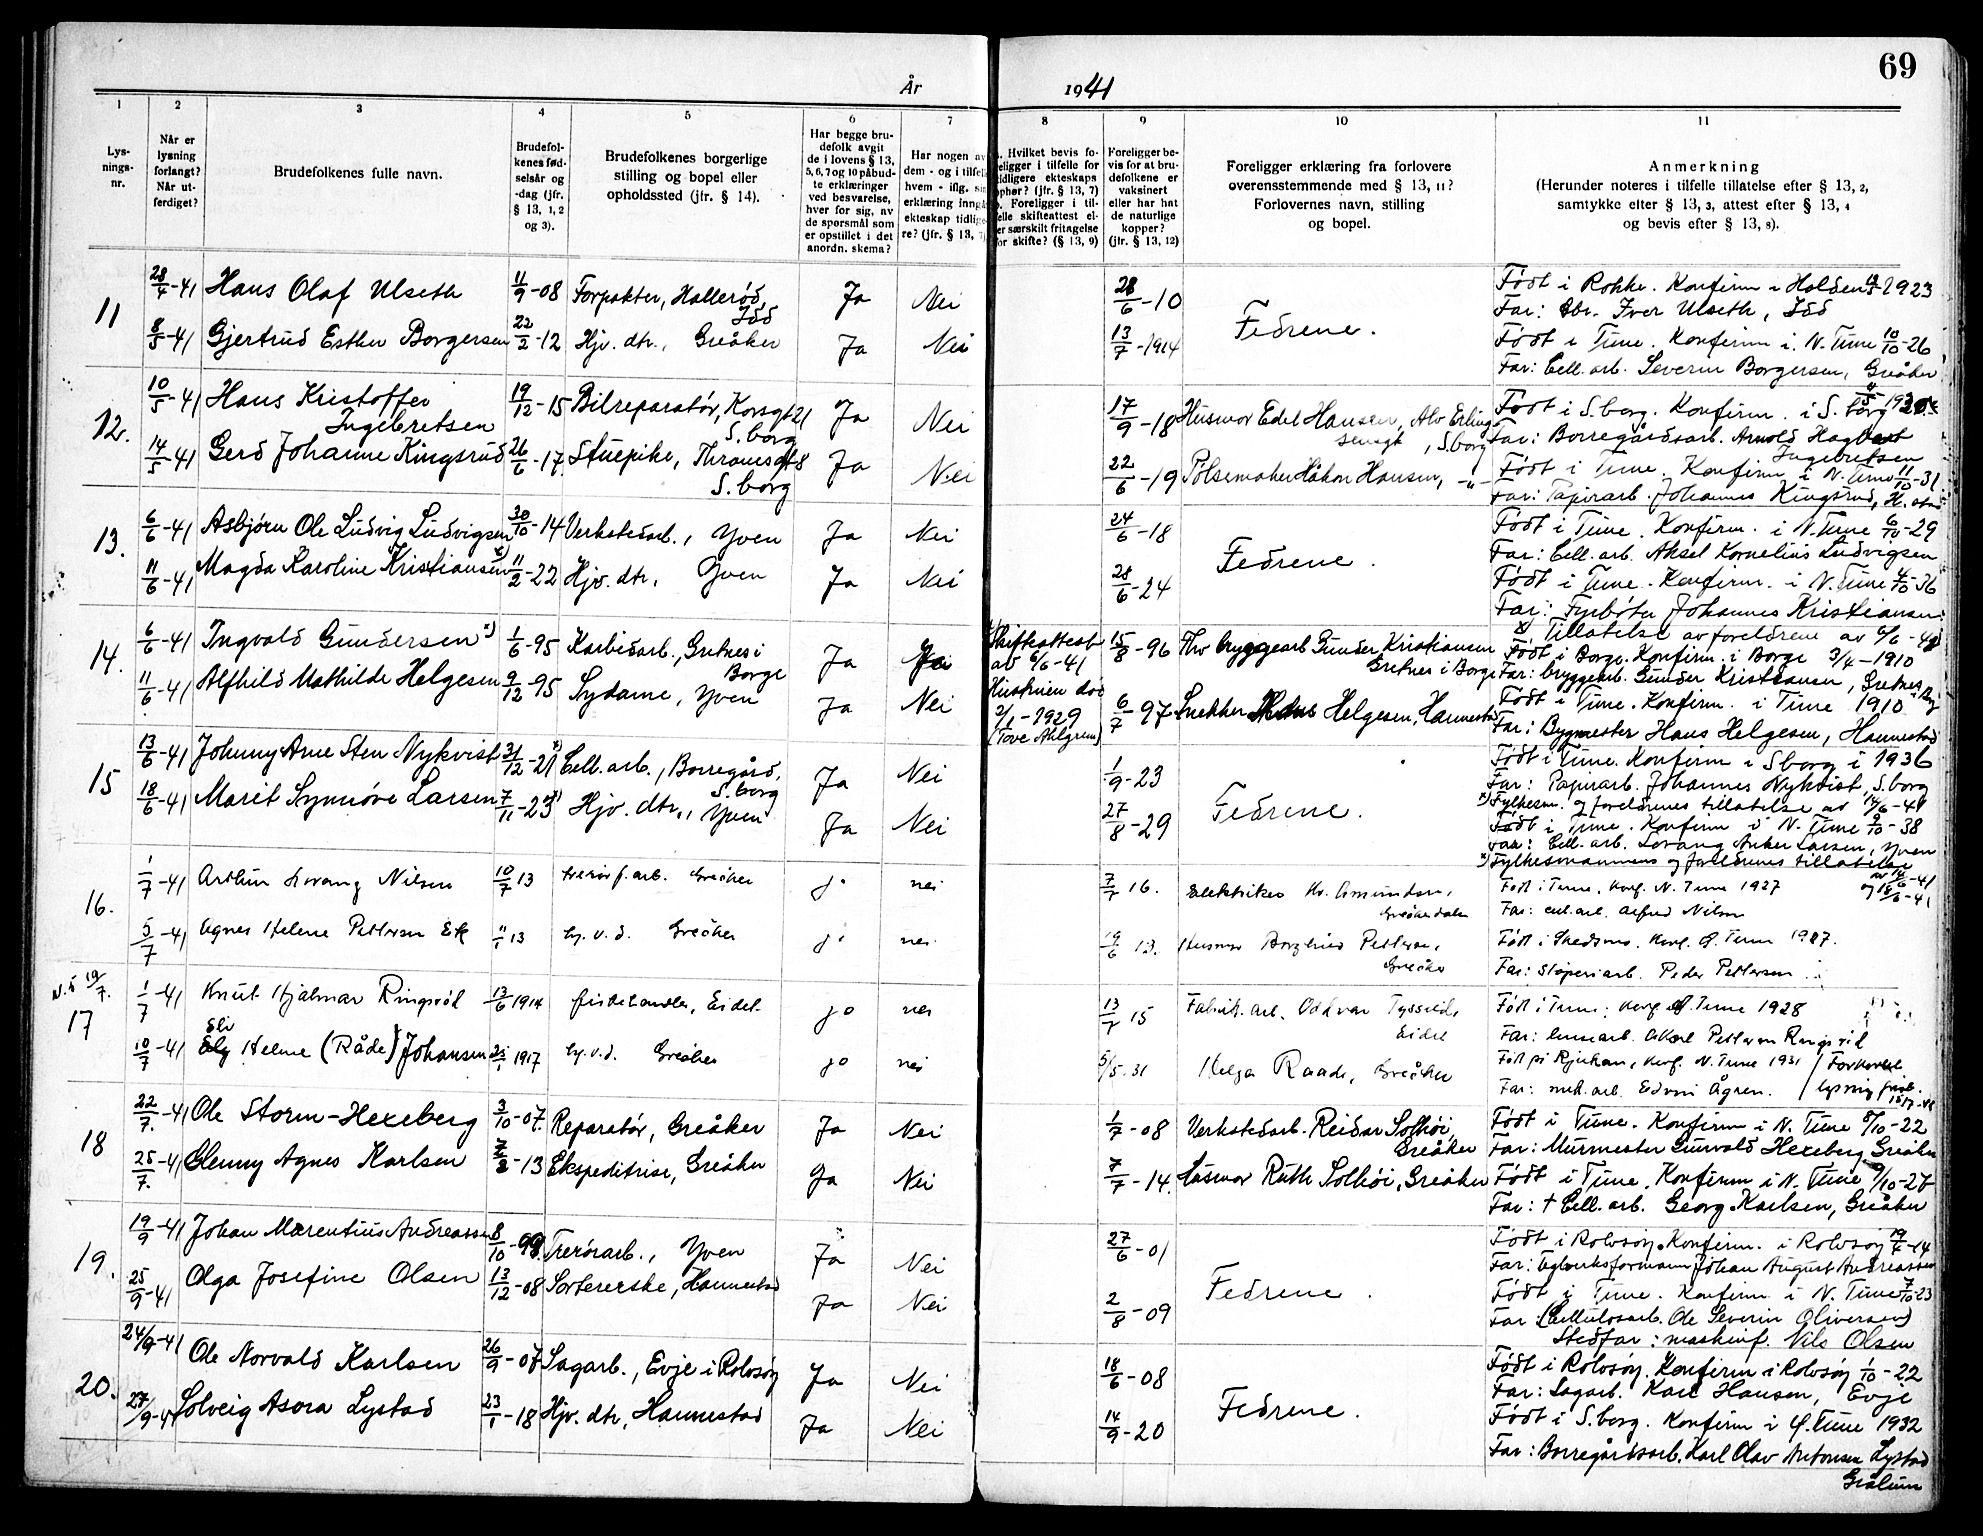 69
År 1941
1 2 3 4 5 6 7 8 9 10 11
Lysnings-nr.
Når er lysning forlangt? Når utferdiget?
Brudefolkenes fulle navn.
Brudefolkenes fødselsår og -dag (jfr. § 13, 1, 2 og 3).
Brudefolkenes borgerlige stilling og bopel eller opholdssted (jfr. § 14).
Har begge brudefolk avgit de i lovens § 13, 5, 6, 7 og 10 påbudte erklæringer ved besvarelse, hver for sig, av de spørsmål som er opstillet i det anordn. skema?
Har nogen av dem - og i tilfelle hvem - iflg. sin erklæring inngått ekteskap tidligere? (jfr. § 13, 7)
Hvilket bevis foreligger i tilfelle for tidligere ekteskaps ophør? (jfr. § 13, 7) Foreligger i tilfelle skifteattest eller særskilt fritagelse for skifte? (§ 13, 9)
Foreligger bevis for at brudefolkene er vaksinert eller har hat de naturlige kopper? (jfr. § 13, 12)
Foreligger erklæring fra forlovere overensstemmende med § 13, 11? Forlovernes navn, stilling og bopel.
Anmerkning (Herunder noteres i tilfelle tillatelse efter § 13, 2, samtykke efter § 13, 3, attest efter § 13, 4 og bevis efter § 13, 8).
11
28/4-41 Hans Olaf Ulseth 11/9-08 Forpakter, Hallerød, Idd Ja Nei 28/6-10 Fedrene. Født i Rokke. Konfirm i Halden 1923
Far: Gbr. Iver Ulseth, Idd
8/5-41 Gjertrud Esther Borgersen 22/2-12 Hjv. dtr., Greåker Ja Nei 13/7-1914 Født i Tune. Konfirm i N. Tune 10/10-26
Far: Cell. arb. Severin Borgersen, Greåker
12.
10/5-41 Hans Kristoffer Ingebretsen 19/12-15 Bilreparatør, Korsgt 21 S.borg Ja Nei 17/9-18 Husmor Edel Hansen, Olv Erlingsensgt, S.borg Født i S.borg. Konfirm. i S.borg
Far: Borregårdsarb. Arnold Hagbart Ingebretsen
14/5-41 Gerd Johanne Kingsrud 26/6-17 Stuepike, Thranesgt 8 S.borg Ja Nei 22/6-19 Pølsemaker Håkon Hansen, -"- Født i Tune. Konfirm i N. Tune 11/10-31
Far: Papirarb. Johannes Kingsrud,
13.
6/6-41 Asbjørn Ole Ludvig Ludvigsen 30/10-14 Verkstedarb., Yven Ja Nei 24/6-18 Fedrene. Født i Tune. Konfirm. i N. Tune 6/10-29
Far: Cell. arb. Aksel Kornelius Ludvigsen
11/6-41 Magda Karoline Kristiansen x) 11/2-22 Hjv. dtr, Yven Ja Nei 28/6-24 Født i Tune. Konfirm. i N. Tune 4/10-36
Far: Fyrbøter Johannes Kristiansen
x) Tillatelse av foreldrene av 6/6-41
14.
6/6-41 Ingvald Gundersen x) 1/6-95 Karbidarb., Gretnes i Borge Ja Ja x) Skifteattest av 6/6-41 15/8-96 Thv bryggearb Gunder Kristiansen Gretnes i Borge Født i Borge. Konfirm. i Borge 3/4-1910
Far: bryggearb. Gunder Kristiansen, Gretnes
11/6-41 Alfhild Mathilde Helgesen 9/12-95 Sydame, Yven Ja Nei Hustruen død 2/1-1929 (Tove Ahlgren) 6/7-97 Snekker Hans Helgesen, Hannestad Født i Tune. Konfirm. i Tune 1910
Far: Bygmester Hans Helgesen, Hannestad
15
13/6-41 Johnny Arne Sten Nykvist 31/12-21 x) Cell. arb., Borregård, S.borg Ja Nei 1/9-23 Fedrene. Født i Tune. Konfirm i S.borg i 1936
Far: Papirarb. Johannes Nykvist, S.borg
x) Fylkesm. og foreldrenes tillatelse av 14/6-41
18/6-41 Marit Synnøve Larsen 7/11-23 x) Hjv. dtr., Yven Ja Nei 27/8-29 Født i Tune. Konfirm i N. Tune 9/10-38
Far: Cell. arb. Lorang Anker Larsen, Yven
x) Fylkesmannens og foreldrenes tillatelse
16.
1/7-41 Arthur Lorang Nilsen 10/7 13 Greåker ja nei 7/7 16. Elektriker Kr. Amundsen, Greåkerdalen Født i Tune, konf. N. Tune 1927
Far: cel. arb. Alfred Nilsen
5/7-41 Agnes Helene Pettersen Ek 11/1 13 hj.v.d. Greåker ja nei 19/6 13. Husmor Borghild Pettersen, Greåker Født i Skedsmo. konf. Ø. Tune 1927.
Far: støperiarb. Peder Pettersen
17
1/7-41 Knut Hjalmar Ringsrød 13/6 1914 fiskehandler, Eidet. ja nei 13/7 15 Fabrik. arb. Oddvar Eidet Født i Tune, konf. N. Tune 1928
10/7-41 Eli Helene (Råde) Johansen 1917 hj.v.d. Greåker ja nei 5/5.31 Helga Raade, Greåker Født på Rjukan, konf. N. Tune 1931
Far: mek. arb. Edvin Ågren.
18
22/7-41 Ole Storm-Hexeberg 3/10-07. Reparatør, Greåker Ja Nei 1/7-08 Verkstedarb. Reidar Solhøi, Greåker Født i Tune. Konfirm i N. Tune 8/10-22
Far: Murmester Gunvald Hexeberg Greåker
25/7-41 Glenny Agnes Karlsen 13 Ekspeditrise, Greåker Ja Nei 7/7-14. Husmor Ruth Solhøi, Greåker Født i Tune. Konfirm i N. Tune 9/10-27
Far: † Cell. arb. Georg Karlsen, Greåker
19.
19/9-41 Johan Marentius Andreassen 8/10-99 Trerørarb., Yven Ja Nei 27/6-01 Fedrene. Født i Rolvsøy. Konfirm. i Rolvsøy 19/4-14
Far: Teglverksformann Johan August Andreassen
25/9-41 Olga Josefine Olsen 13/12-08 Sortererske, Hannestad Ja Nei 2/8-09 Født i Tune. Konfirm i N. Tune 7/10-23
Far (Cellulosarb. Ole Severin Oliversen)
Stedfar: maskinf. Nils Olsen
20.
24/9-41 Ole Norvald Karlsen 26/9-07 Sagarb., Evje i Rolvsøy Ja Nei 18/6-08 Fedrene. Født i Rolvsøy. Konfirm i Rolvsøy 1/10-22
Far: Sagarb. Karl Hansen, Evje
27/9-41 Solveig Asora Lystad 23/1-18 Hjv. dtr, Hannestad Ja Nei 14/9-20 Født i S.borg. Konfirm i Ø. Tune 1932
Far: Borregårdsarb. Karl Olav Antonsen Lystad
Grålum